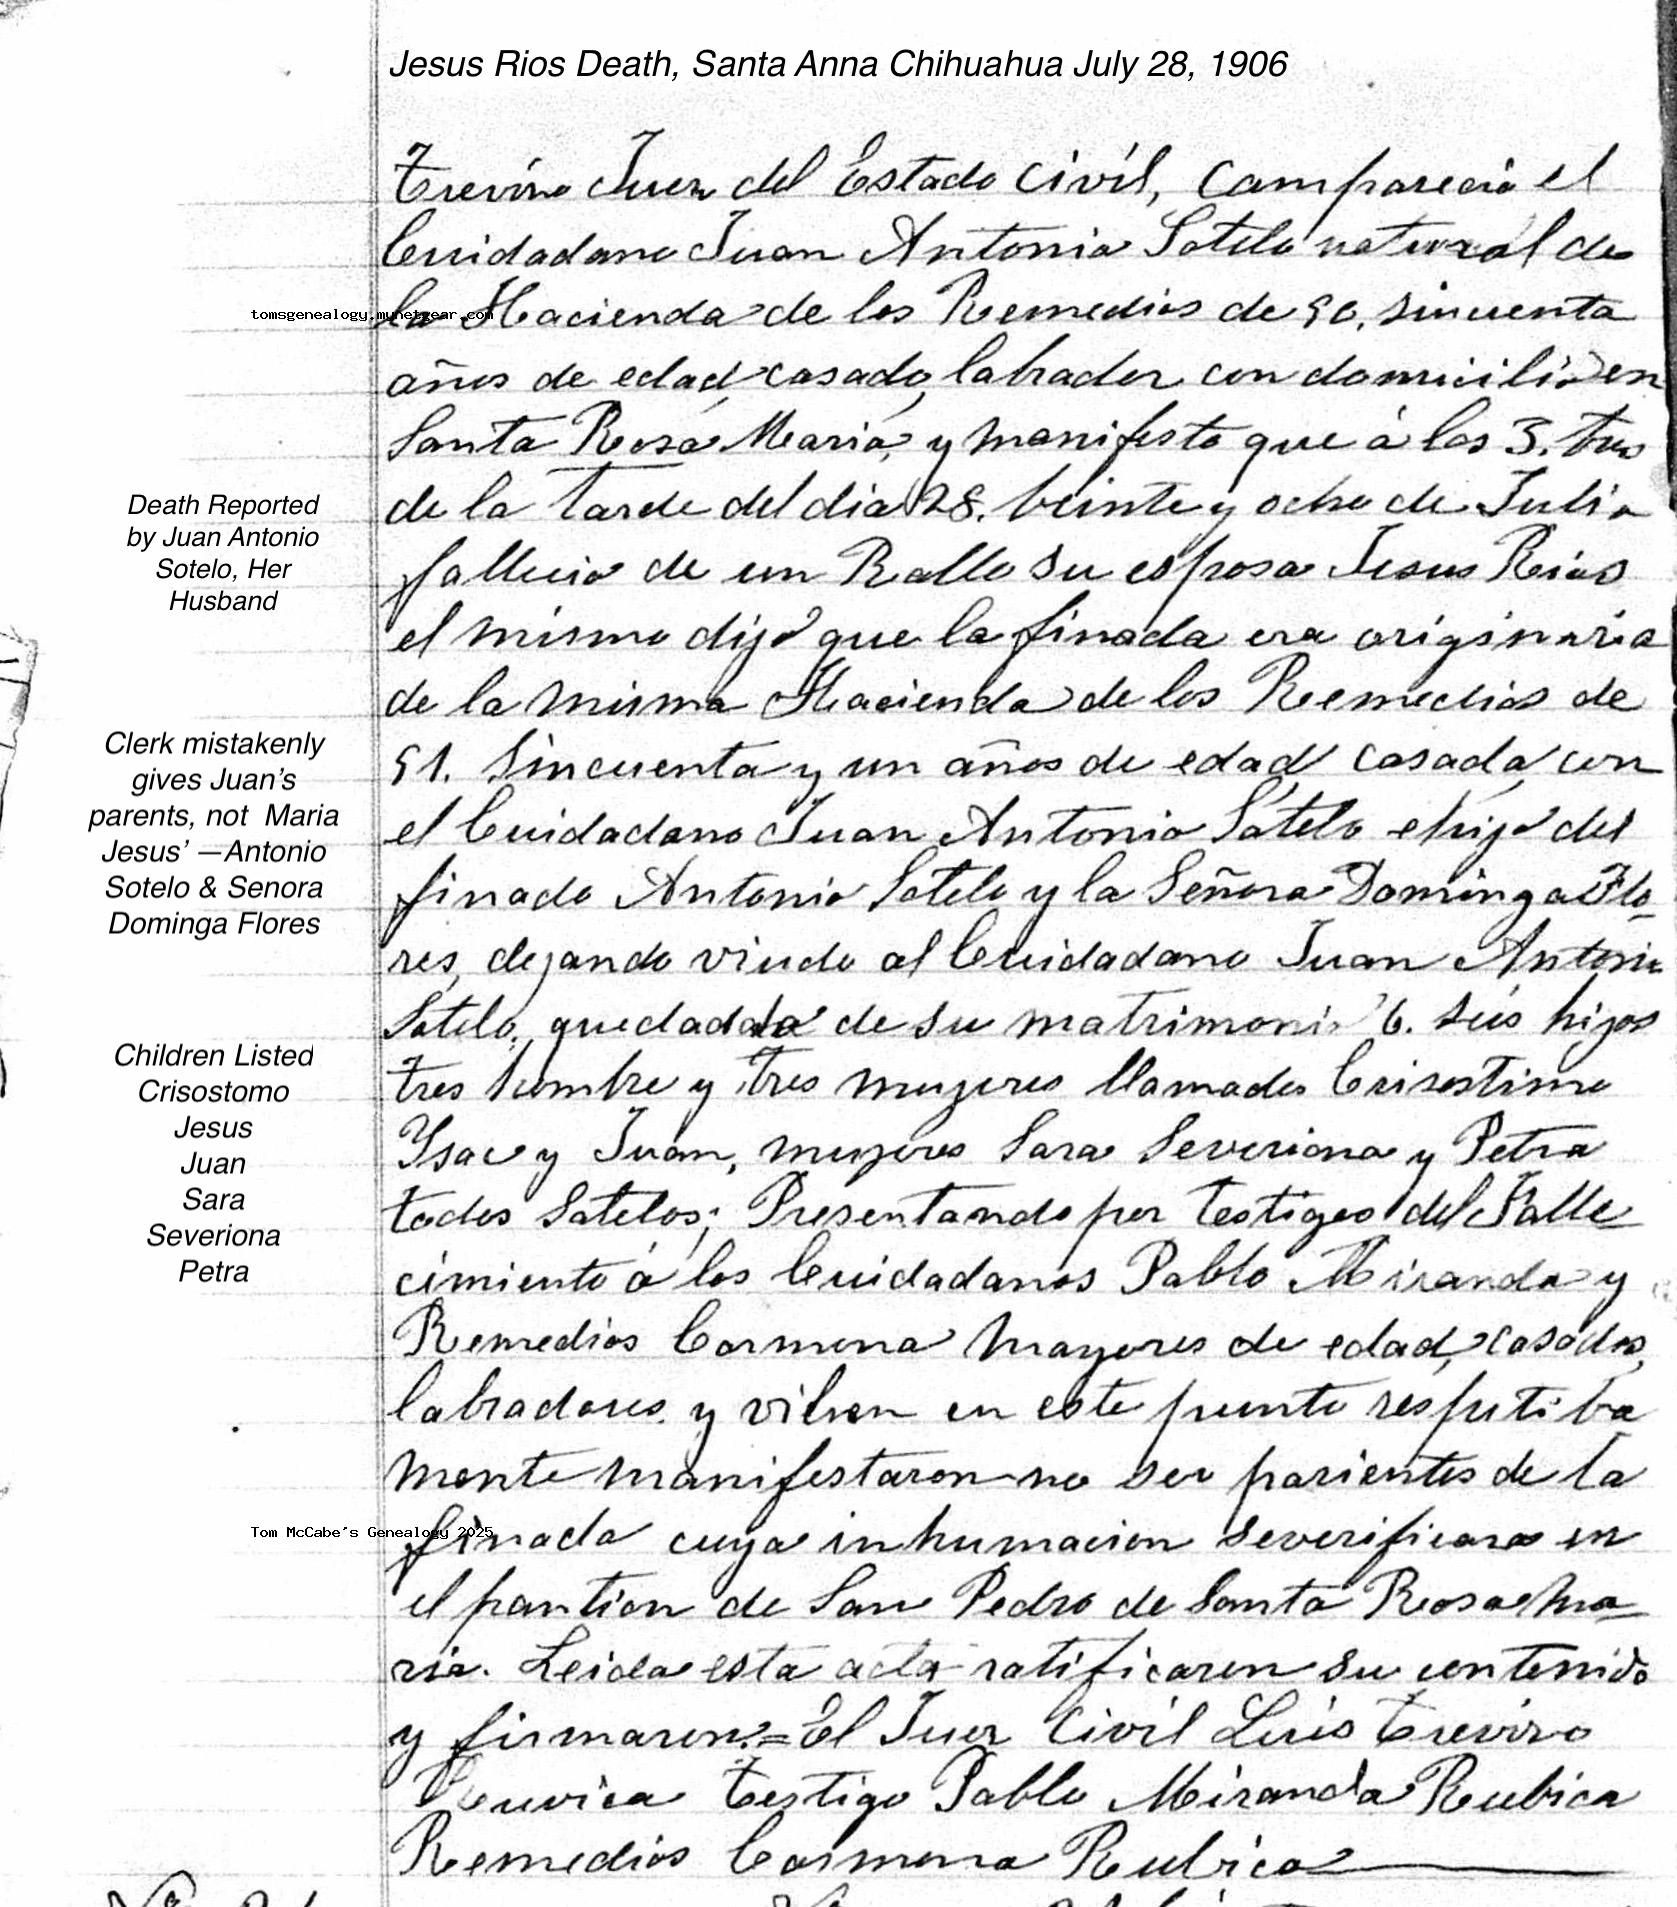 Jesus Rios Death, Santa Anna Chihuahua July 28, 1906
Trevino Juez del Estado Civil, Camparecio el
Cuidadano Juan Antonio Sotelo natural de
la Hacienda de los Remedios de 50. sincuenta
años de edad, casado, labrador con domicilio en
Santa Rosa Maria, y manifesto que á las 3. tres
de la tarde del dia 28. beinte y ocho de Julio
fallecio de un Rallo su esposa Jesus Rios
el mismo dijo que la finada era originaria
de la misma Hacienda de los Remedios de
51. Sincuenta y un años de edad casada con
el Cuidadano Juan Antonio Sotelo e hija del
finado Antonio Sotelo y la Señora Dominga Flo-
res, dejando viudo al Cuidadano Juan Antonio
Sotelo, de su matrimonio 6. seis hijos
tres hombre y tres mujeres llamados Crisostimo
Ysac y Juan, mujeres Sara Severiana y Petra
todos Sotelos; Presentando por testigos del Falle
cimiento á los Cuidadanos Pablo Miranda y
Remedios Carmona Mayores de edad, casados,
labradores y viben en este punto respetiba
mente manifestaron no ser parientes de la
finada cuya inhumacion severificara en
el pantion de San Pedro de Santa Rosa Ma-
ria. Leida esta acta ratificaron su contenido
y firmaron.=El Juez Civil Luis Trevino
Ruvica Testigo Pablo Miranda Rubica
Remedios Carmona Rubica
tomsgenealogy.mynetgear.com
Death Reported
by Juan Antonio
Sotelo, Her
Husband
Clerk mistakenly
gives Juan's
parents, not Maria
Jesus' —Antonio
Sotelo & Senora
Dominga Flores
Children Listed
Crisostomo
Jesus
Juan
Sara
Severiona
Petra
Tom McCabe's Genealogy 2025